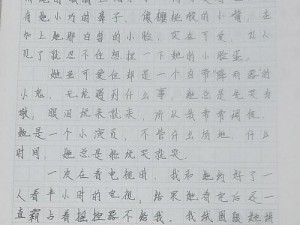 有她小巧的鼻子、樱桃般的小嘴，在
加上她那白皙的小脸，实在可爱，让人
见了就忍不住想捏一下她的小脸蛋。
她虽可爱但却是一个自带降雨器的
小鬼，无论遇到什么事，她总是先哭为
敬，眼泪说来就来，所以我常常调侃，
她是一个小演员，不管什么场地，什么
时间，她总是能说哭就哭。
一次在看电视时，我和她约好了一
人看半小时的电视，结果她看完后还一
直霸占着摇控器不给我。我就围跟她